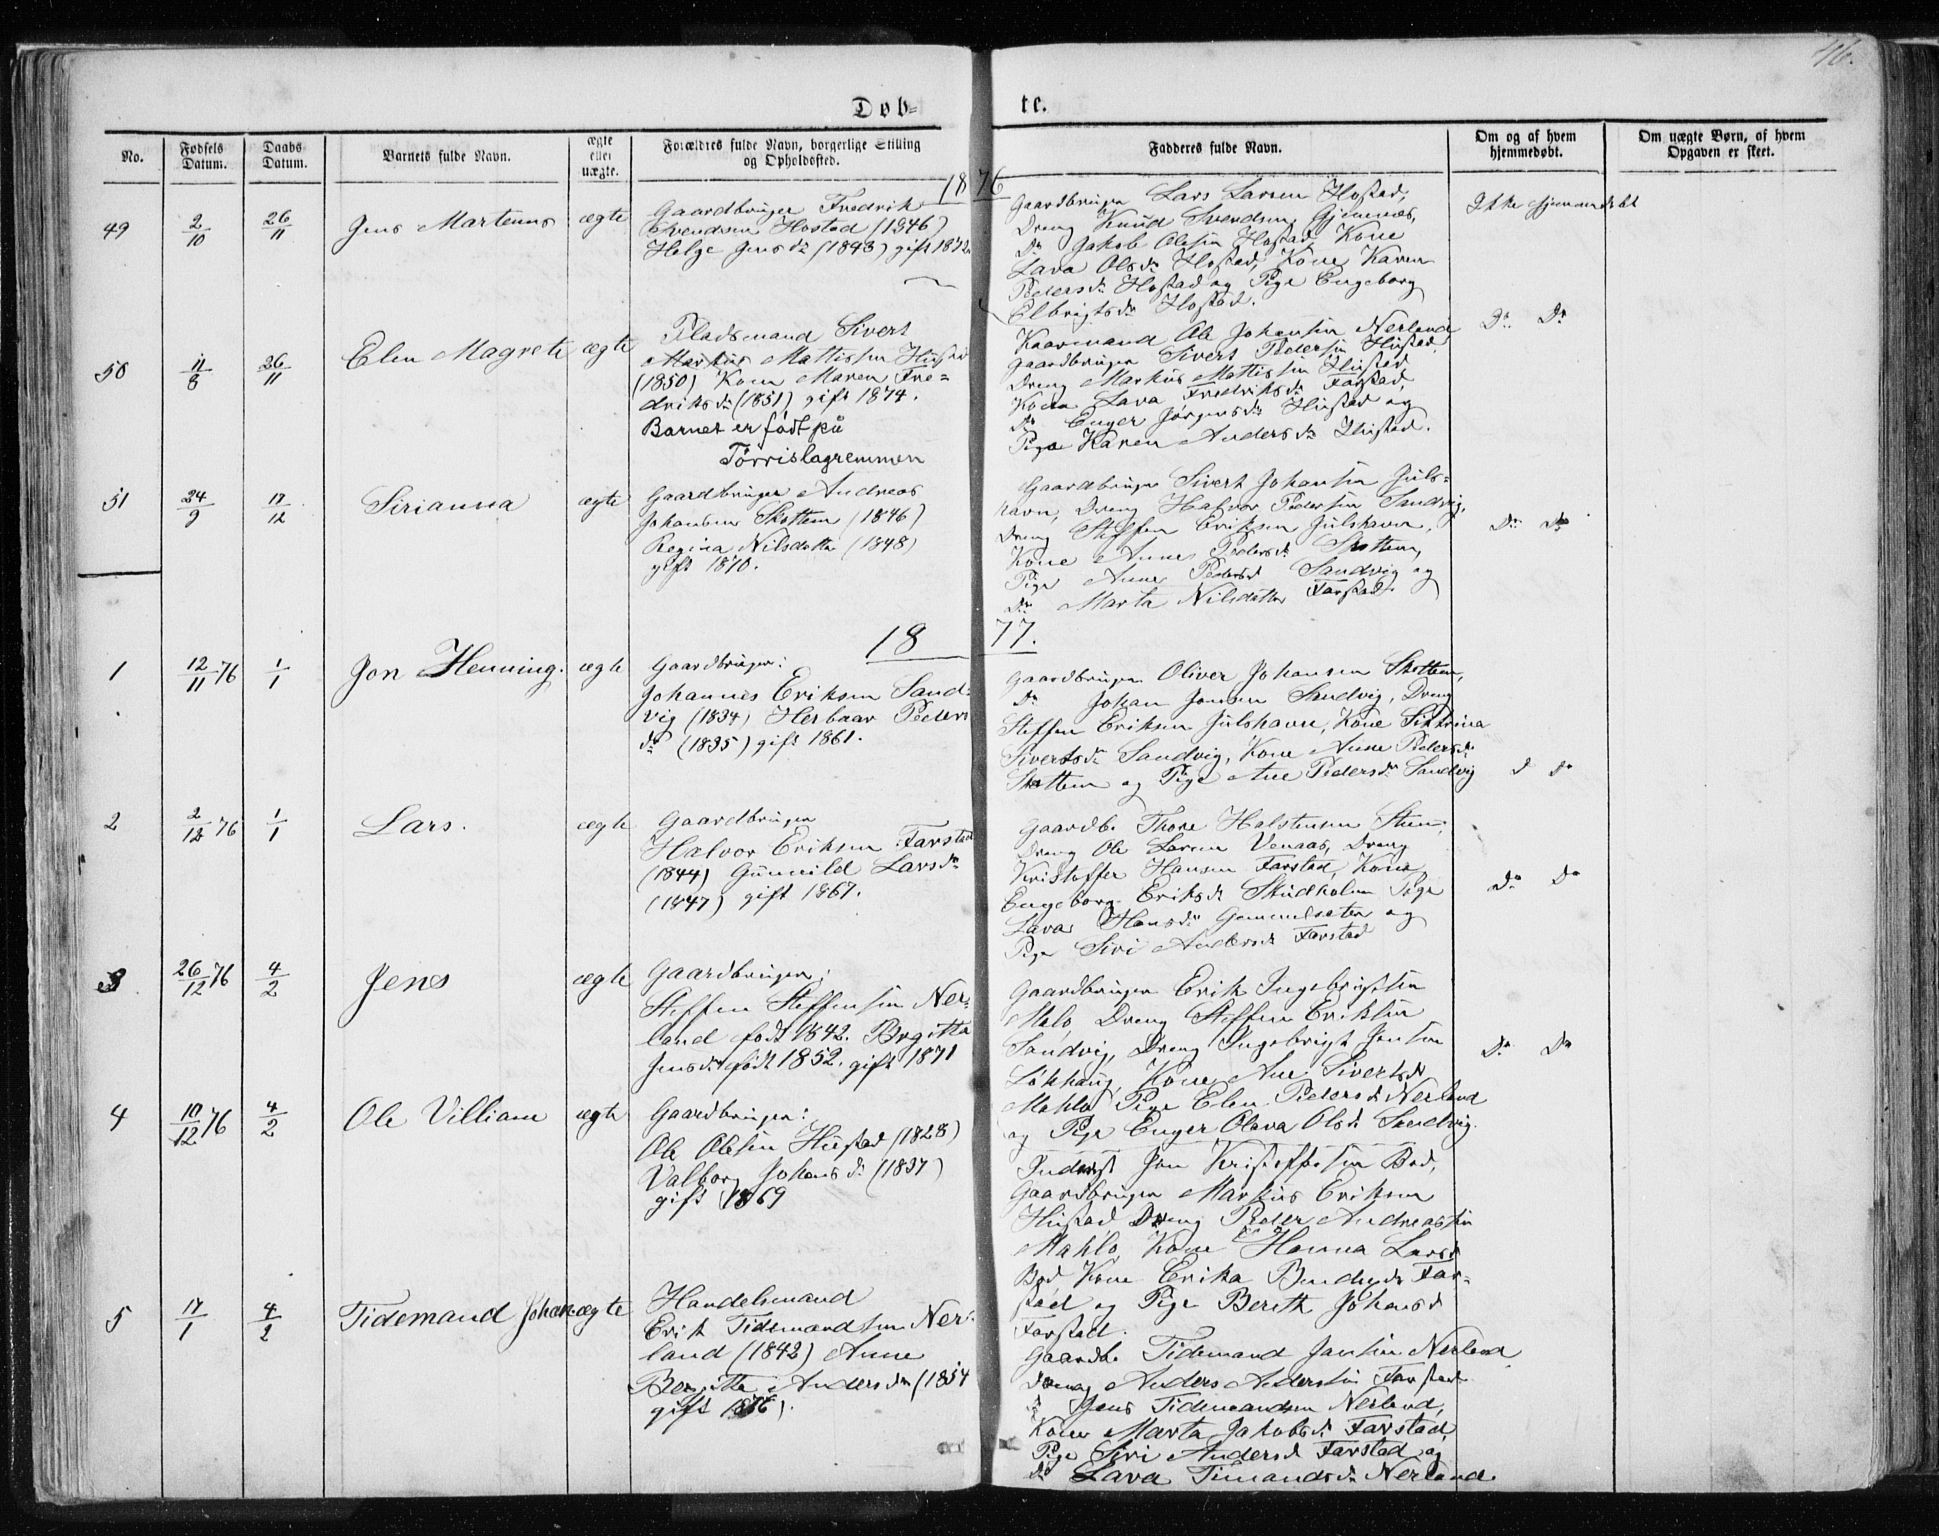 46.
Døb=
te.
No.
Fødsels Datum.
Daabs Datum.
Barnets fulde Navn.
ægte eller uægte.
Forældres fulde Navn, borgerlige Stilling og Opholdssted.
Fadderes fulde Navn.
Om og af hvem hjemmedøbt.
Om uægte Børn, af hvem Opgaven er skeet.
1876
49
2/10
26/11
Jens Martenus
ægte
Gaardbruger Fredrik
Svendsen Hostad (1846)
Helge Jensdr (1843) gift 1872
Gaardbruger Lars Larsen Hostad,
Dreng Knud Svendsen Gjennæs,
Do Jakob Olesen Hostad Kone
Lava Olsdr Hostad, Kone Karen
Pedersdr Hostad og Pige Engeborg
Elbrigtsdr Hostad.
Ikke hjemmedøbt
50
11/8
26/11
Elen Magrete
ægte
Pladsmand Sivert
Markus Mattissen Hustad
(1850) Kone Maren Fre=
driksdr (1851) gift 1874.
Barnet er født på
Tørrislagremmen
Kaarmand Ole Johansen Nerland
Gaardbruger Sivert Pedersen Hustad,
Dreng Markus Mattissen Hustad,
Kone Lava Fredriksdr Farstad,
Do Enger Jørgensdr Hustad og
Pige Karen Andersdr Hustad.
Do Do
51
24/9
17/12
Sirianna
ægte
Gaardbruger Andreas
Johansen Skottem (1846)
Regina Nilsdatter (1848)
gift 1870.
Gaardbruger Sivert Johansen Juls=
havn, Dreng Halvor Pedersen Sandvig,
Dreng Steffen Eriksen Julshavn,
Kone Anne Pedersdr Skottem,
Pige Anne Pedersd Sandvig og
Do Marta Nilsdatter Farstad.
Do Do
1877.
1
12/11 76
1/1
Jon Henning.
ægte
Gaardbruger:
Johannes Eriksen Sand=
vig (1834) Herbaar Peders
dr (1835) gift 1861.
Gaardbruger Oliver Johansen Skottem,
Do Johan Jonsen Sandvig, Dreng
Steffen Eriksen Julshavn, Kone Sirtrina
Sivertsdr Sandvig, Kone Anne Pedersdr
Skottem og Pige Ane Pedersdr Sandvig
D Do
2
2/12 76
1/1
Lars.
ægte
Gaardbruger
Halvor Eriksen Farstad
(1844) Gunnild Larsdr
(1847) gift 1867.
Gaardb. Thore Halstensen Steen,
Dreng Ole Larsen Venaas, Dreng
Kristoffer Hansen Farstad, Kone
Engeborg Eriksdr Skudholm Pige
Lava Hansdr Gammelsæter og
Pige Siri Andersdr Farstad
Do Do
3
26/12 76
4/2
Jens
ægte
Gaardbruger:
Steffen Steffensen Ner=
land født 1842. Brgitta
Jensdr født 1852. gift 1871
Gaardbruger Erik Ingebrigtsen
Malo, Dreng Steffen Eriksen
Sandvig, Dreng Ingebrigt Jonsen
Løkhaug, Kone Ane Sivertsdr
Mahlo Pige Elen Pedersdr Nerland
og Pige Enger Olava Olsdr Sandvig.
Do Do
4
10/12 76
4/2
Ole Villiam
ægte
Gaardbruger:
Ole Olesen Hustad (1828)
Valborg Johansdr (1837)
gift 1869
Inderst Jon Kristoffersen Bod,
Gaardbruger Markus Eriksen
Hustad Dreng Peder Andreassen
Mahlo, Kone Hanna Larsd
Bod Kone Erika Bendigsdr Far=
stad og Pige Berith Johansd
Farstad.
5
17/1
4/2
Tidemand Johan
ægte
Handelsmand
Erik Tidemandsen Ner=
land (1842) Anne
Beritta Andersdr (1854
gift 1876).
Gaardb. Tidemand Jansen Nerland
Dreng Anders Andersen Farstad
d Jens Tidemandsen Nerland,
Kone Marta Jakobsdr Farstad,
Pige Siri Andersd Farstad og
Do Lava Timandsdr Nerland.